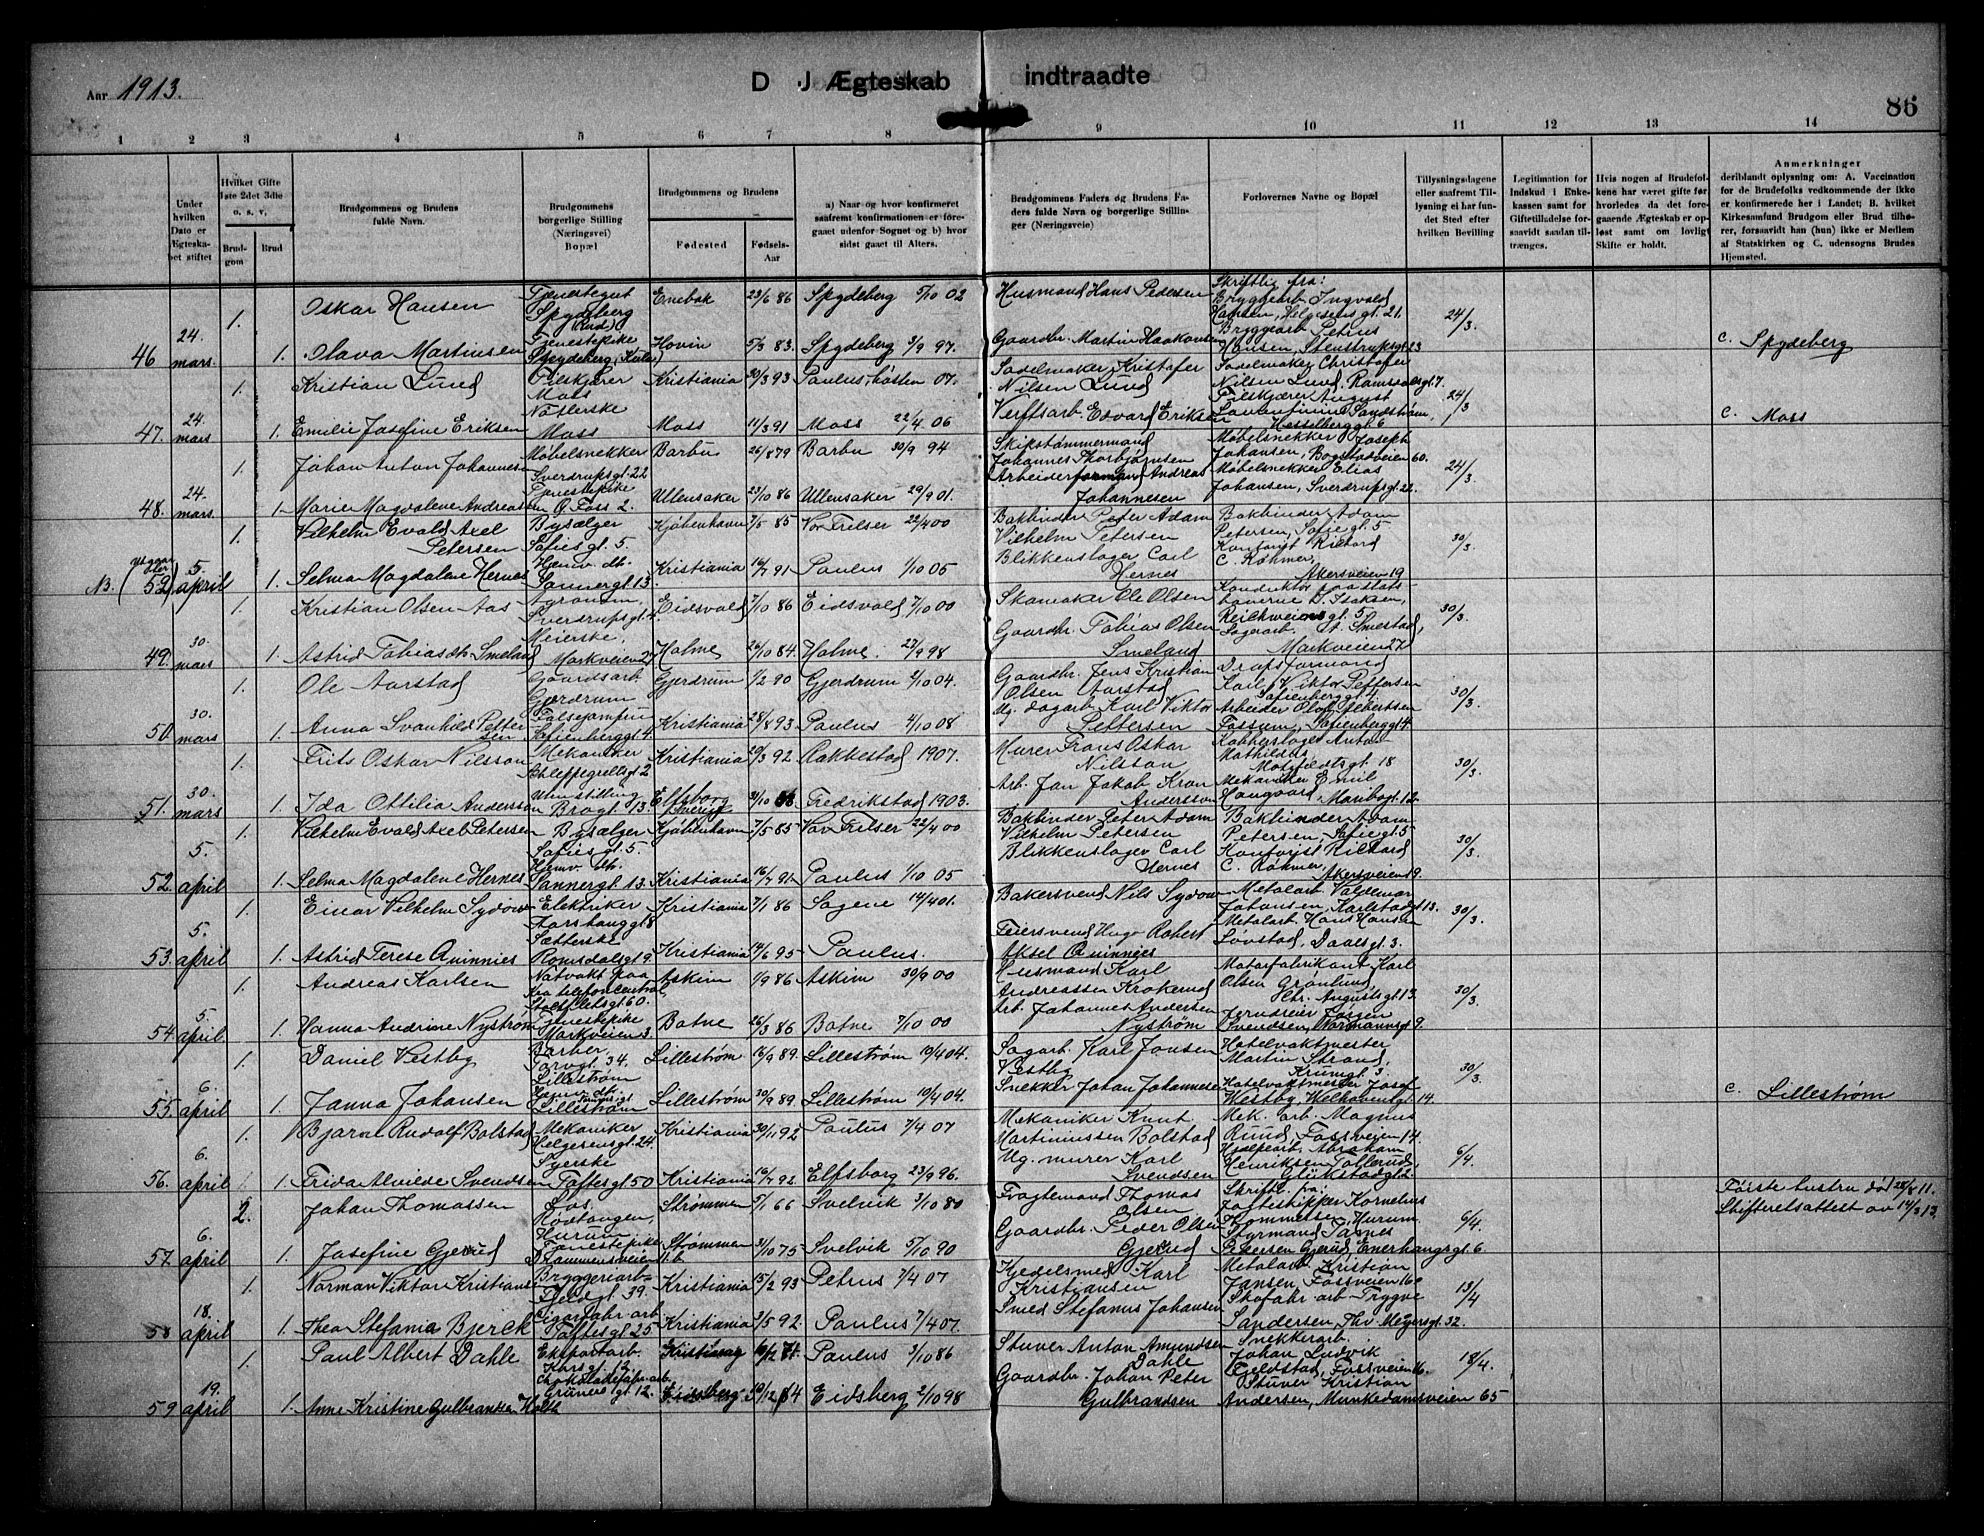 Aar 1913.
D. J Ægteskab indtraadte
86
1 2 3 4 5 6 7 8 9 10 11 12 13 14
Under hvilken Dato er Ægteskabet stiftet
Hvilket Gifte 1ste 2det 3die o. s. v,
Brudgom
Brud
Brudgommens og Brudens fulde Navn.
Brudgommens borgerlige Stilling (Næringsvei) Bopæl
Brudgommens og Brudens
Fødested
Fødsels-Aar
a) Naar og hvor konfirmeret saafremt konfirmationen er foregaaet udenfor Sognet og b) hvor sidst gaaet til Alters.
Brudgommens Faders og Brudens Faders fulde Navn og borgerlige Stillinger (Næringsveie)
Forlovernes Navne og Bopæl
Tillysningsdagene eller saafremt Tillysning ei har fundet Sted efter hvilken Bevilling
Legitimation for Indskud i Enkekassen samt for Giftetilladelse forsaavidt saadan tiltrænges.
Hvis nogen af Brudefolkene har været gifte før hvorledes da det foregaaende Ægteskab er opløst samt om lovligt Skifte er holdt.
Anmerkninger
deriblandt oplysning om: A. Vaccination for de Brudefolks vedkommende der ikke er konfirmerede her i Landet; B. hvilket Kirkesamfund Brudgom eller Brud tilhører, forsaavidt han (hun) ikke er Medlem af Statskirken og C. udensogns Brudes Hjemsted.
1. Oskar Hansen Tjenestegut Spydeberg (Rud) Enebak 23/6 86 Spydeberg 5/10 02 Husmand Hans Pedersen Skriftlig fra: Bryggearb Ingvald Hansen, Helgesens gt. 21. 24/3.
46 24. mars. 1. Olava Martinsen Tjenestepike Spydeberg Hovin 5/3 83. Spydeberg 3/9 97. Gaardbr. Martin Haakonsen Bryggearb Petrus Hansen, Stenstrupsgt 23 C. Spydeberg
1. Kristian Lund Filskjærer Moss Kristiania 30/3 93 Paulus, høsten 07. Sadelmaker Kristofer Nilsen Lund Sadelmaker Christofer Nilsen Lund. Ramsdalsgt 7. 24/3
47. 24. mars 1. Emilie Josefine Eriksen Næsterske Moss Moss 11/3 91 Moss 22/4 06 Verftsarb. Edvard Eriksen Filskjærer August Sandstrøm, Hesselberg gt. 6 C. Moss
1. Johan Anton Johannesen Møbelsnekker Sverdrupsgt. 22 Barbu 26/8 79 Barbu 30/9 94 Skipstømmermand Johannes Thorbjørnsen Møbelsnekker Joseph Johansen, Bogstadveien 60. 24/3.
48. 24. mars 1. Marie Magdalene Andreassen Tjenestepike O. Foss 2. Ullensaker 23/10 86 Ullensaker 29/9 01. Arbeiderformand Andreas Johannesen Møbelsnekker Elias Johansen, Sverdrupsgt. 22.
1. Vilhelm Evald Axel Petersen Bysælger Sofies gt. 5. Kjøbenhavn 7/5 85 Vor Frelser 22/4 00 Bokbinder Peter Adam Vilhelm Petersen Bokbinder Adam Petersen, Sofie gt. 5 30/3.
NB. 52) 5. april 1. Selma Magdalene Hernes Hjemv. dt. Sannergt. 13. Kristiania 16/7 91 Paulus 1/10 05 Blikkenslager Carl Hernes Kontorist Richard C. Røhmer, Akersveien 19
1. Kristian Olsen Aas Agronom, Sverdrupsgt. 4. Eidsvold 7/10 86 Eidsvold 7/10 00 Skomaker Ole Olsen Konduktør paa Statsbanerne D. Isaksen, Reichweinsgt. 5 30/3.
49. 30. mars 1. Astrid Tobiasdt. Smeland Meierske, Markveien 27 Holme 26/10 84. Holme. 27/9 98 Gaardbr. Tobias Olsen Smeland Lagerarb. A. Smestad, Markveien 27
1. Ole Aarstad Gaardsarb Gjerdrum Gjerdrum 1/2 90 Gjerdrum 2/10 04. Gaardbr. Jens Kristian Olsen Aarstad Karl Viktor Pettersen Sofienberggt. 4. 30/3.
50. 30. mars 1. Anna Svanhild Pettersen Sofienberggt. 4 Kristiania 28/8 93. Paulus 4/10 08 Ug. dagarb Karl Viktor Pettersen Arbeider Olof Albertsen Fossum, Sofienberggt. 4.
1. Frits Oskar Nilsson Mekaniker Schleppegrellsgt 2 Kristiania 20/3 92 Rakkestad 1907. Murer Frans Oskar Nilsson Kobberslager Anton Motzfeldtsgt 18 30/3.
51. 30. mars 1. Ida Ottilia Andersson Uten stilling Brogt. 13 Elfsborg Sverige Fredrikstad 1903. Arb. Jan Jakob Kron Andersson Mekaniker Emil Haugaard, Maribogt. 12.
1. Vilhelm Evald Axel Petersen Bysælger Sofies gt. 5. Kjøbenhavn 7/5 85 Vor Frelser 22/4 00 Bokbinder Peter Adam Vilhelm Petersen Bokbinder Adam Petersen, Sofie gt. 5 30/3.
52. 5. april 1. Selma Magdalene Hernes Hjemv. dt. Sannergt. 13. Kristiania 16/7 91 Paulus 1/10 05 Blikkenslager Carl Hernes Kontorist Richard C. Røhmer, Akersveien 19.
1. Einar Vilhelm Sydow Elektriker Aarshauggt. 8 Kristiania 7/1 86 Sagene 14/4 01. Bakersvend Nils Sydow Metalarb. Valdemar Johansen, Karlstadgt 13. 30/3.
53. 5. april 1. Astrid Terese Quinnies Sætterske Romsdalsgt 9 Kristiania 14/6 95 Paulus. Feiersvend Hugo Robert Aksel Quinnies Metalarb. Hans Hansen Lovstad, Daalsgt. 3.
1. Andreas Karlsen Natvakt paa Kra telefoncentral, Stolt flelsgt. 60. Askim 1/9 86 Askim 30/9 00 Husmand Karl Andreassen Krokerud Motorfabrikant Karl Olsen Grønlund, Hertr. Augustsgt 13. 30/3.
54. 5. april. 1. Hanna Andrine Nystrøm Tjenestepike Markveien 3. Botne 26/3 86 Botne 7/10 00 Arb. Johannes Andersen Nystrøm Jerndreier Jørgen Svendsen, Normannsgt 9.
1. Daniel Vestby Barber Torvgt. 34. Lillestrøm Lillestrøm 16/9 89. Lillestrøm 10/4 04. Sagarb. Karl Jonsen Vestby Hotelvaktmester Martin Strand, Krumgt. 3. 30/3.
55. 6. april 1. Janna Johansen Hjemv. dt. Lillestrøm Lillestrøm 30/9 89. Lillestrøm 10/4 04. Snekker Johan Johannesen Hotelvaktmester Josef Westby, Welhavensgt 14. C. Lillestrøm
1. Bjarne Rudolf Bolstad Mekaniker Helgesensgt. 24 Kristiania 30/11 92 Paulus 7/4 07 Mekaniker Knut Martiniussen Bolstad Mek. arb. Magnus Ruud, Fossveien 14. 6/4.
56. 6. april 1. Frida Alvilde Svendsen Syerske Toftesgt 50 Kristiania 16/7 92. Elfsborg 23/9 96. Ug. murer Karl Svendsen Hjælpearb. Abraham Henriksen Tollerud, Glückstadgt 2.
2. Johan Thomassen Los, Rødtangen, Hurum Strømmen 5/1 66 Svelvik 3/10 80 Fragtemand Thomas Olsen Skriftl. fra Jagteskipper Kornelius Thommesen, Hurum 6/4. Første hustru død 28/8 11. Skifteretsattest av 14/3 13.
57. 6. april 1. Josefine Gjerud Tjenestepike Drammensveien 11. b. Strømmen 31/10 75 Svelvik 5/10 90 Gaardbr. Peder Olsen Gjerud Styrmand Pedersen Gjerud, Enerhaugsgt. 6.
1. Norman Viktor Kristiansen Bryggeriarb Fjeldgt. 39. Kristiania 15/2 93 Petrus 7/4 07 Kjedelsmed Karl Kristiansen Metalarb. Kristian Jansen, Fossveien 16c 13/4
58 18. april 1. Thea Stefania Bjerck Cigarfabr. arb Toftesgt 25 Kristiania 3/5 92. Paulus 7/4 07. Smed Stefanus Johansen Skofabr. arb. Trygve Sandersen, Thv. Meyersgt. 32.
1. Paul Albert Dahle Eksportarb Korsgt. 12. Kristiania Paulus 3/10 86 Stuver Anton Amundsen Dahle Snekkerarb. Johan Ludvik Fjeldstad, Fossveien 16. 18/4.
59 19. april 1. Anne Kristine Gulbransen Holth Chokoladefabr. arb Grüners gt. 12. Eidsberg Eidsberg 2/10 98 Gaardbr. Johan Peter Gulbrandsen Stuver Kristian Andersen, Munkedamsveien 65